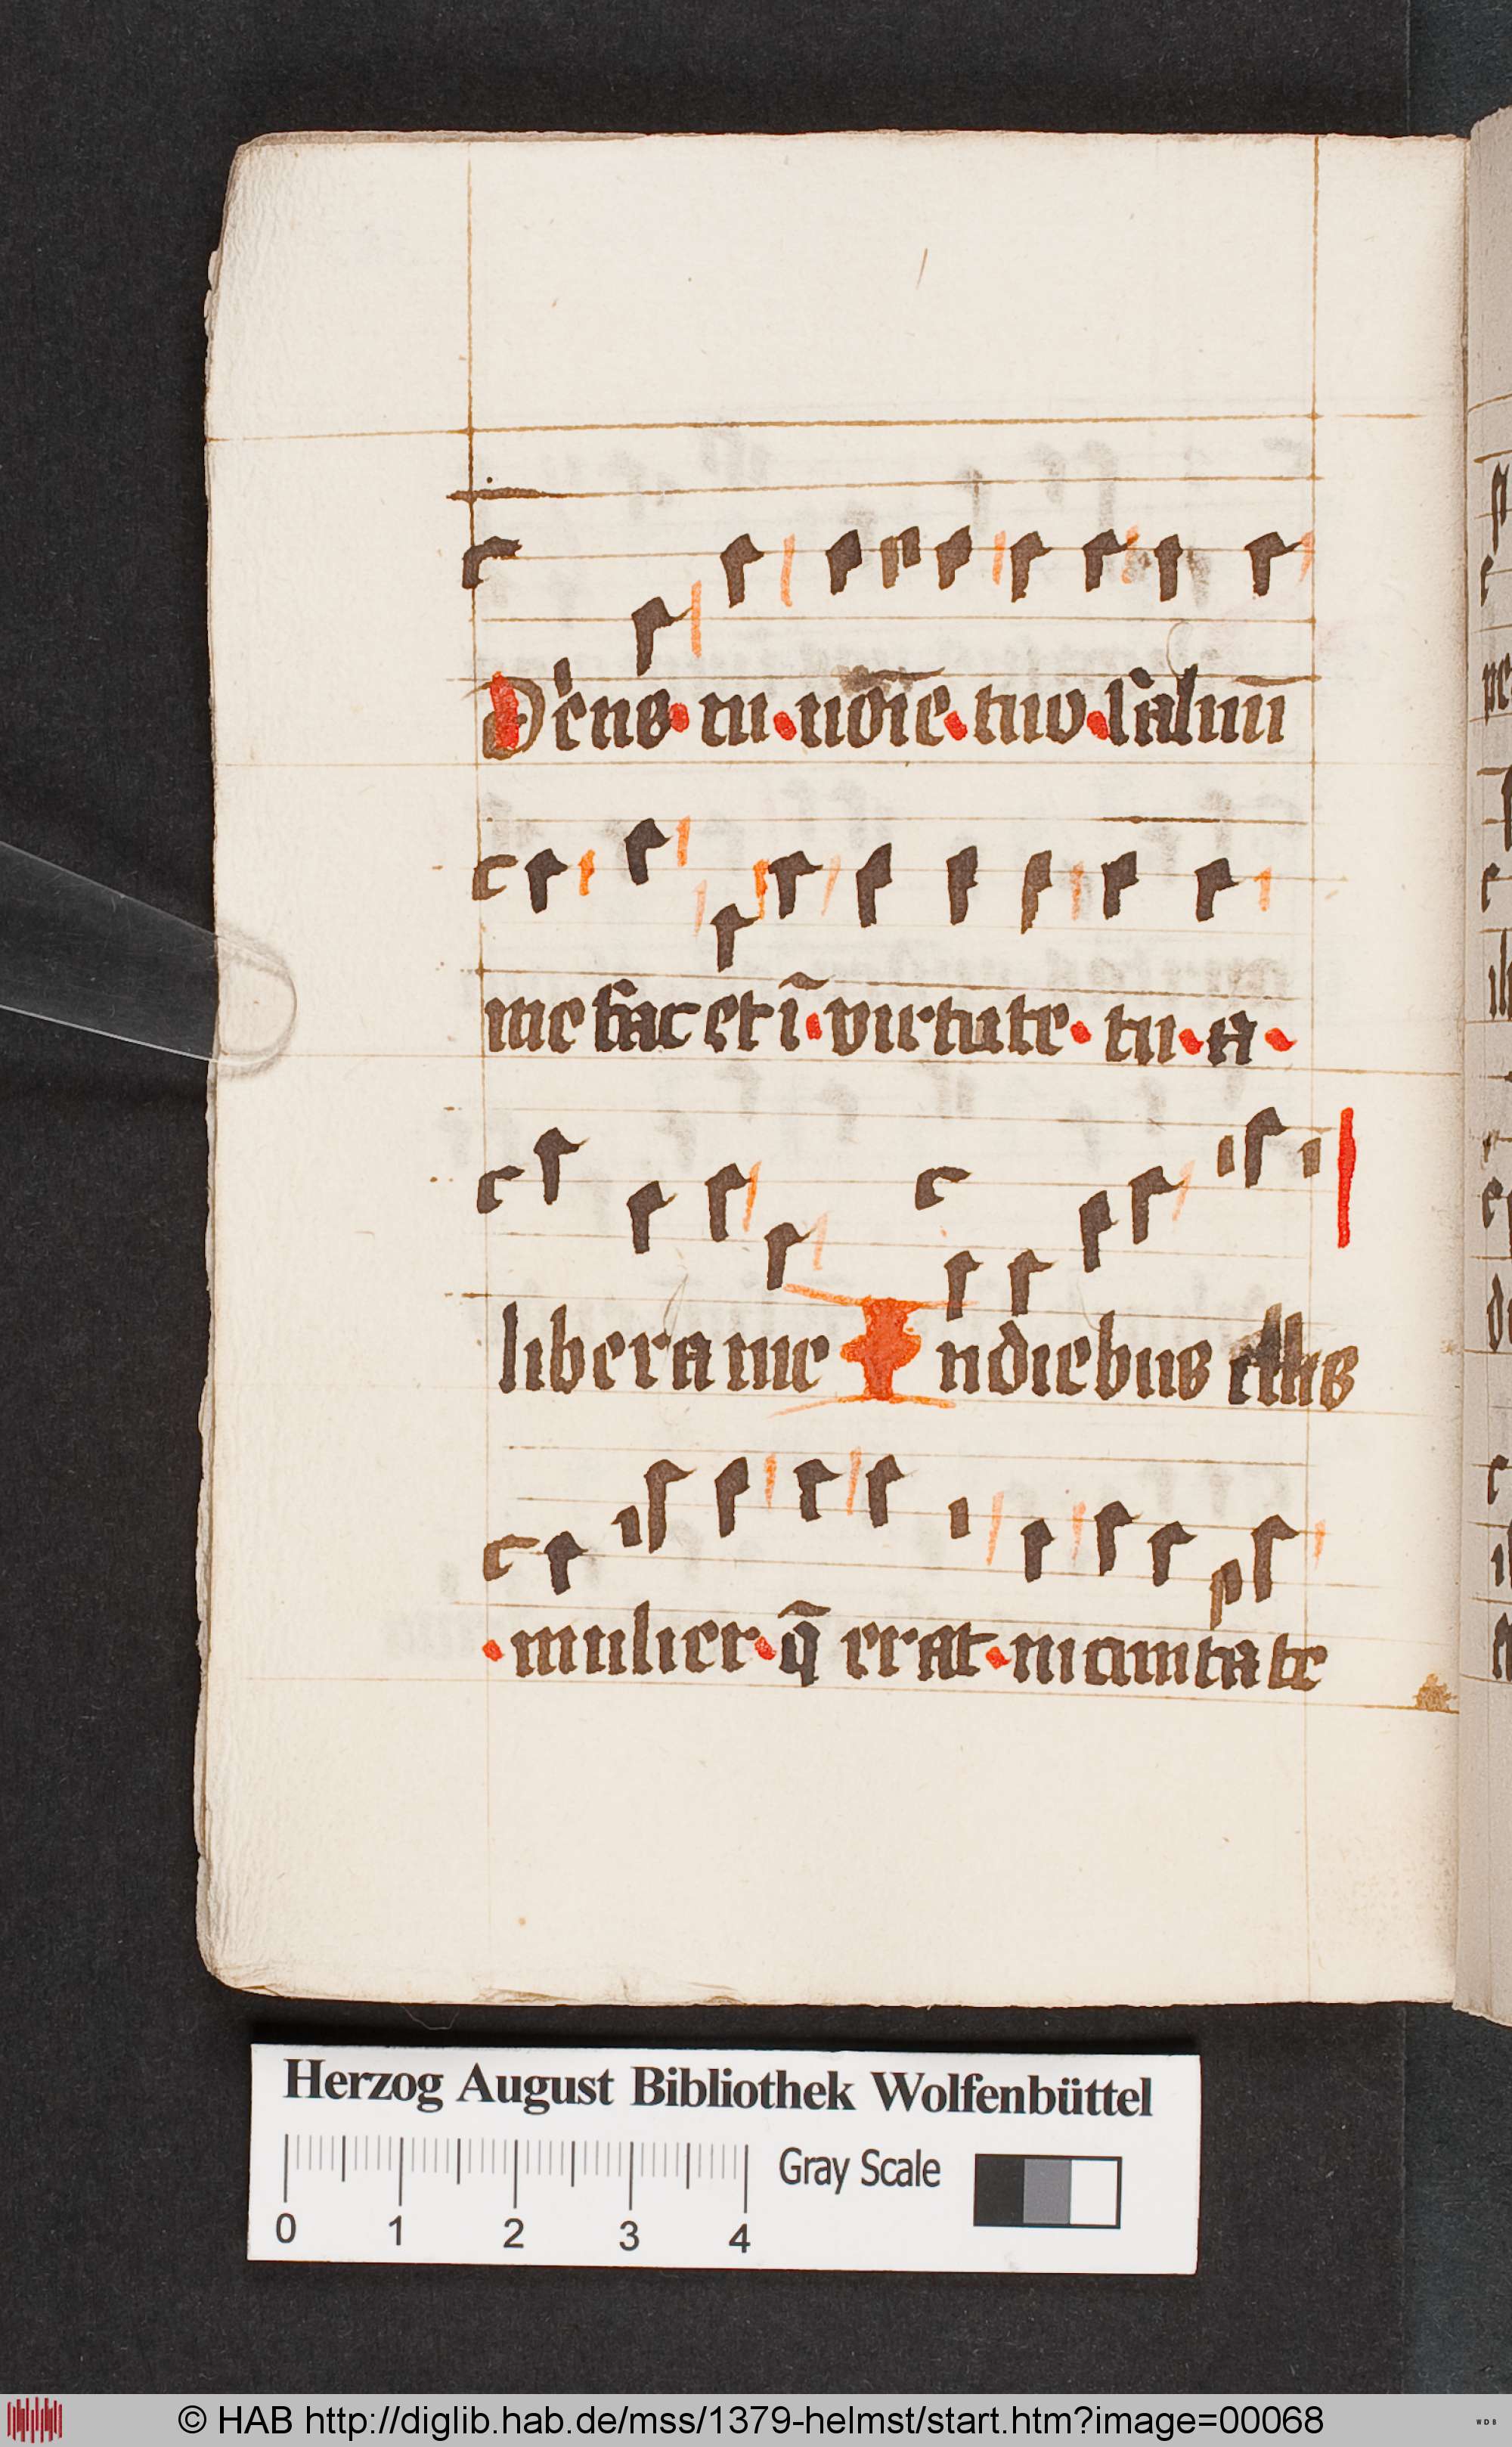 Deus tu noīe tuo saluū
me fac et ī virtute tu a
libera me In diebus illis
mulier q̄ erat in ciuitate
Herzog August Bibliothek Wolfenbüttel
0 1 2 3 4 Gray Scale
© HAB http://diglib.hab.de/mss/1379-helmst/start.htm?image=00068